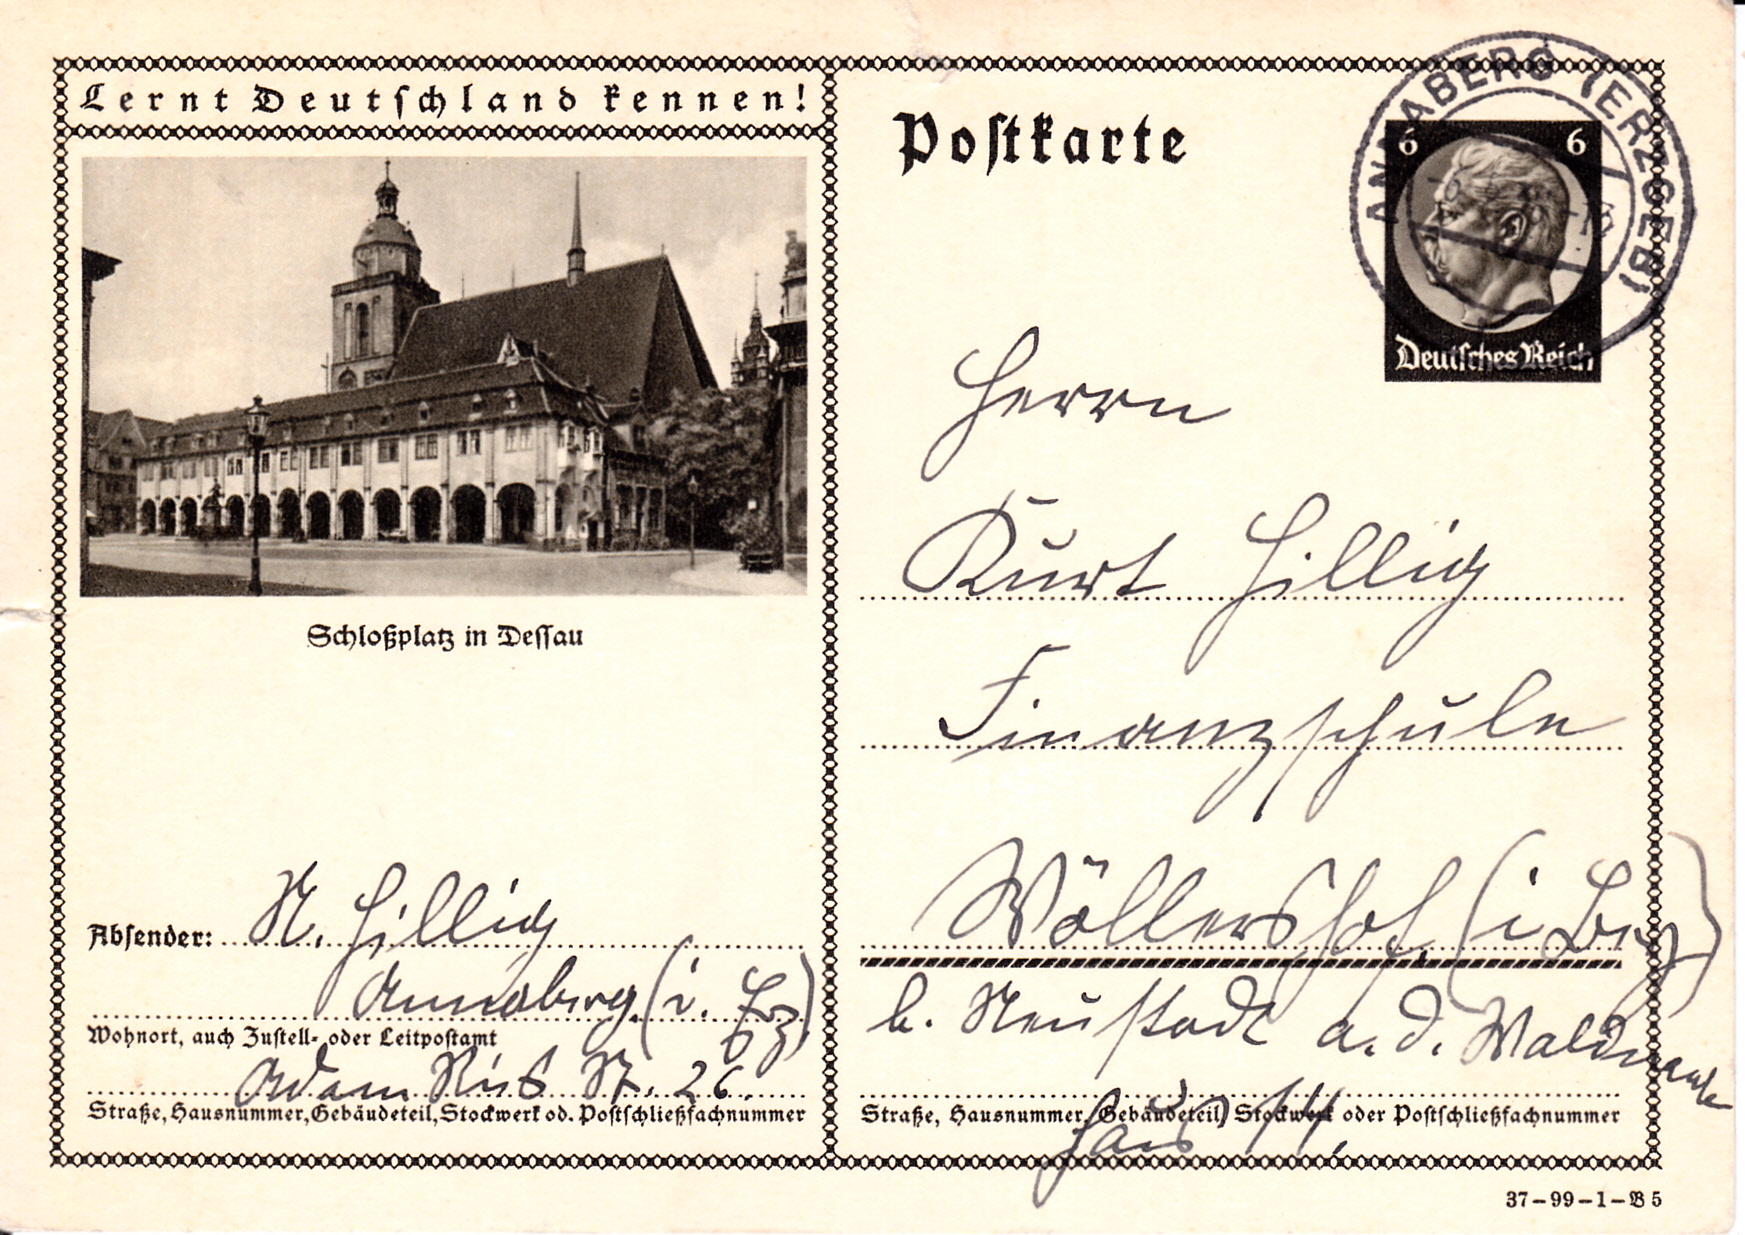 Lernt Deutschland kennen!
Schloßplatz in Dessau
Absender: N. Hillig
Annaberg (i. Erz)
Wohnort, auch Zustell- oder Leitpostamt
Adam Ries St. 26.
Straße, Hausnummer, Gebäudeteil, Stockwerk od. Postschließfachnummer
Postkarte
ANNABERG (ERZGEB)
6 6
Deutsches Reich
Herrn
Kurt Hillig
Finanzschule
Wöllershof (i Bay)
b. Neustadt a. d. Waldnaab
Straße, Hausnummer, Gebäudeteil, Stockwerk oder Postschließfachnummer
Haus
37-99-1-B 5